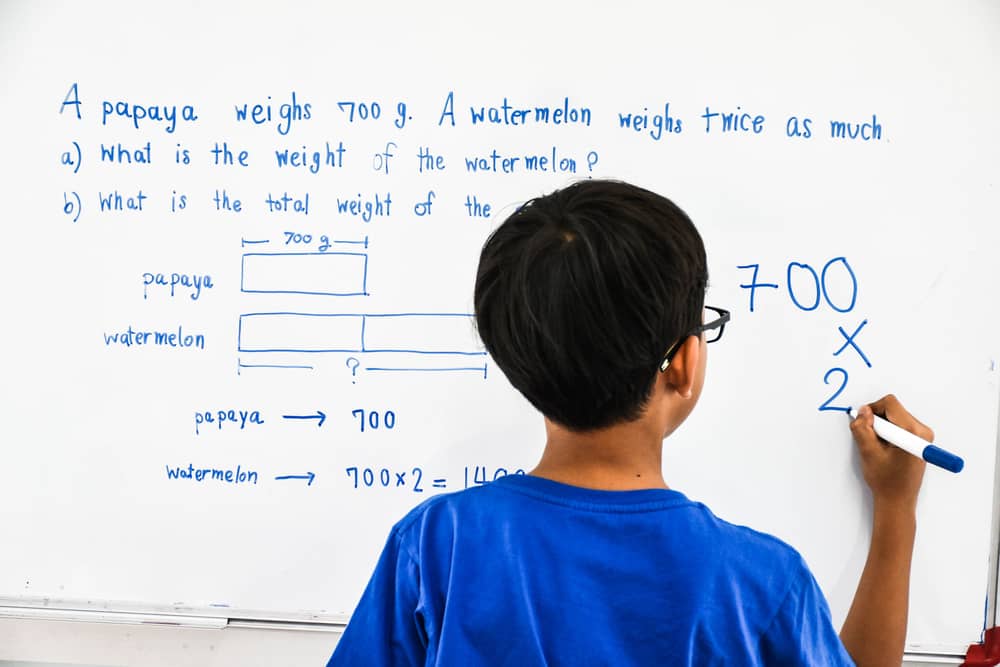 A papaya weighs 700 g. A watermelon weighs twice as much.
a) What is the weight of the watermelon?
b) What is the total weight of the
700 g
papaya
watermelon
?
papaya → 700
watermelon → 700x2 =
700
x
2